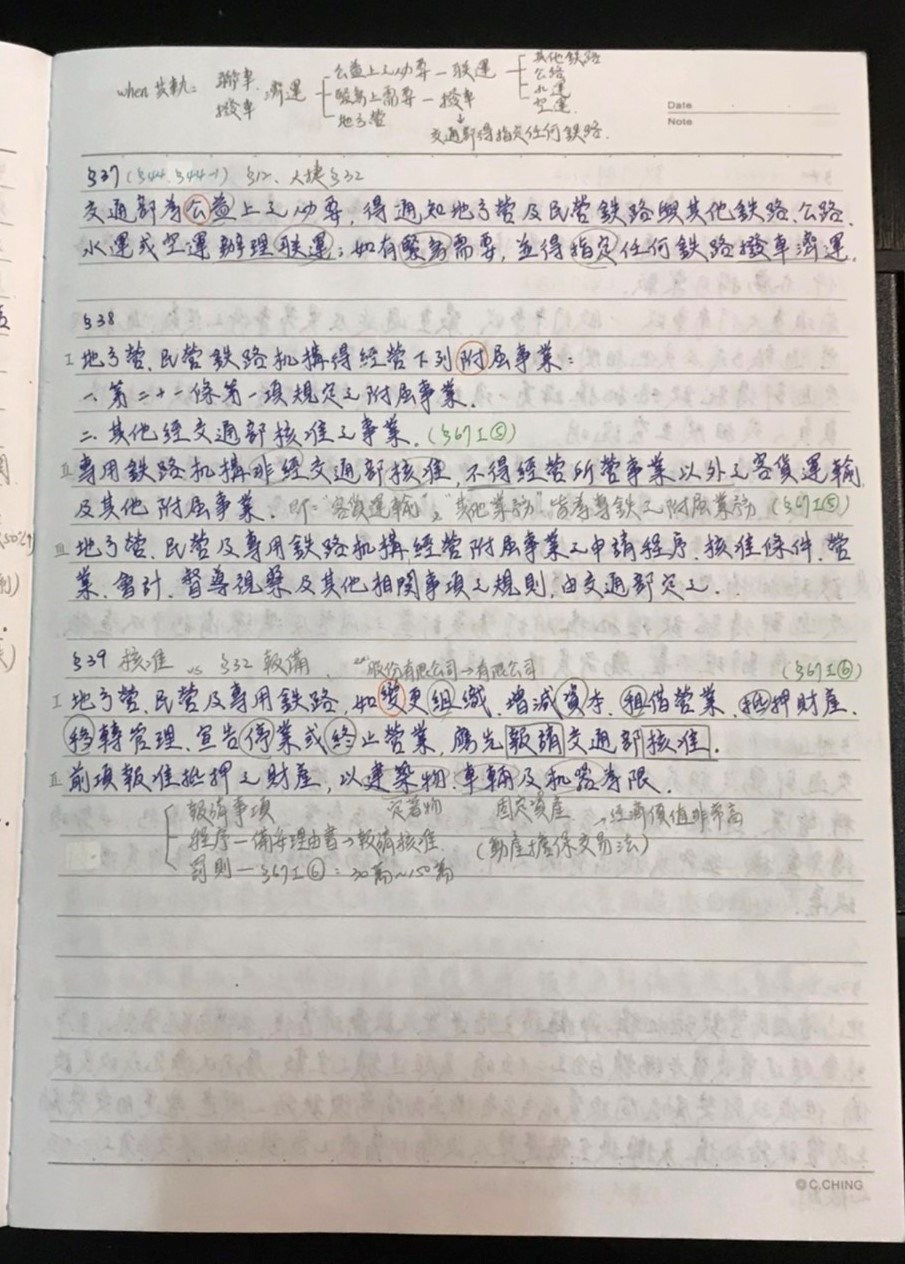 其他鉄路
when 共軌: 聯車 公益上之必要 — 联運 公路
撥車 濟運 緊急上需要 — 撥車 水運
地方營 空運
交通部得指定任何鉄路.
Date
Note
§37 (§44. §44-1) §12、大捷§32
交通部為公益上之必要，得通知地方營及民營鉄路與其他鉄路、公路、
水運或空運辦理联運；如有緊急需要，並得指定任何鉄路撥車濟運.
§38
I 地方營、民營鉄路机構得經營下列附屬事業：
一、第二十一條第一項規定之附屬事業.
二、其他經交通部核准之事業. (§67I⑤)
II 専用鉄路机構非經交通部核准，不得經營所營事業以外之客貨運輸
及其他附屬事業. 即="客貨運輸"、"其他業務"皆為專鉄之附屬業務 (§67I⑤)
III 地方營、民營及專用鉄路机構經營附屬事業之申請程序、核准條件、營
業、會計、督導視察及其他相関事項之規則，由交通部定之.
§39 核准 vs §32 報備. 股份有限公司→有限公司 (§67I⑥)
I 地方營、民營及專用鉄路，如變更組織、增減資本、租借營業、抵押財產、
移轉管理、宣告停業或終止營業，應先報請交通部核准.
II 前項報准抵押之財產，以建築物、車輛及机器為限.
報請事項 定著物 固定資產 →經濟價值非常高
程序—備妥理由書→報請核准. (動產擔保交易法)
罰則—§67I⑥: 30萬~150萬
C.CHING